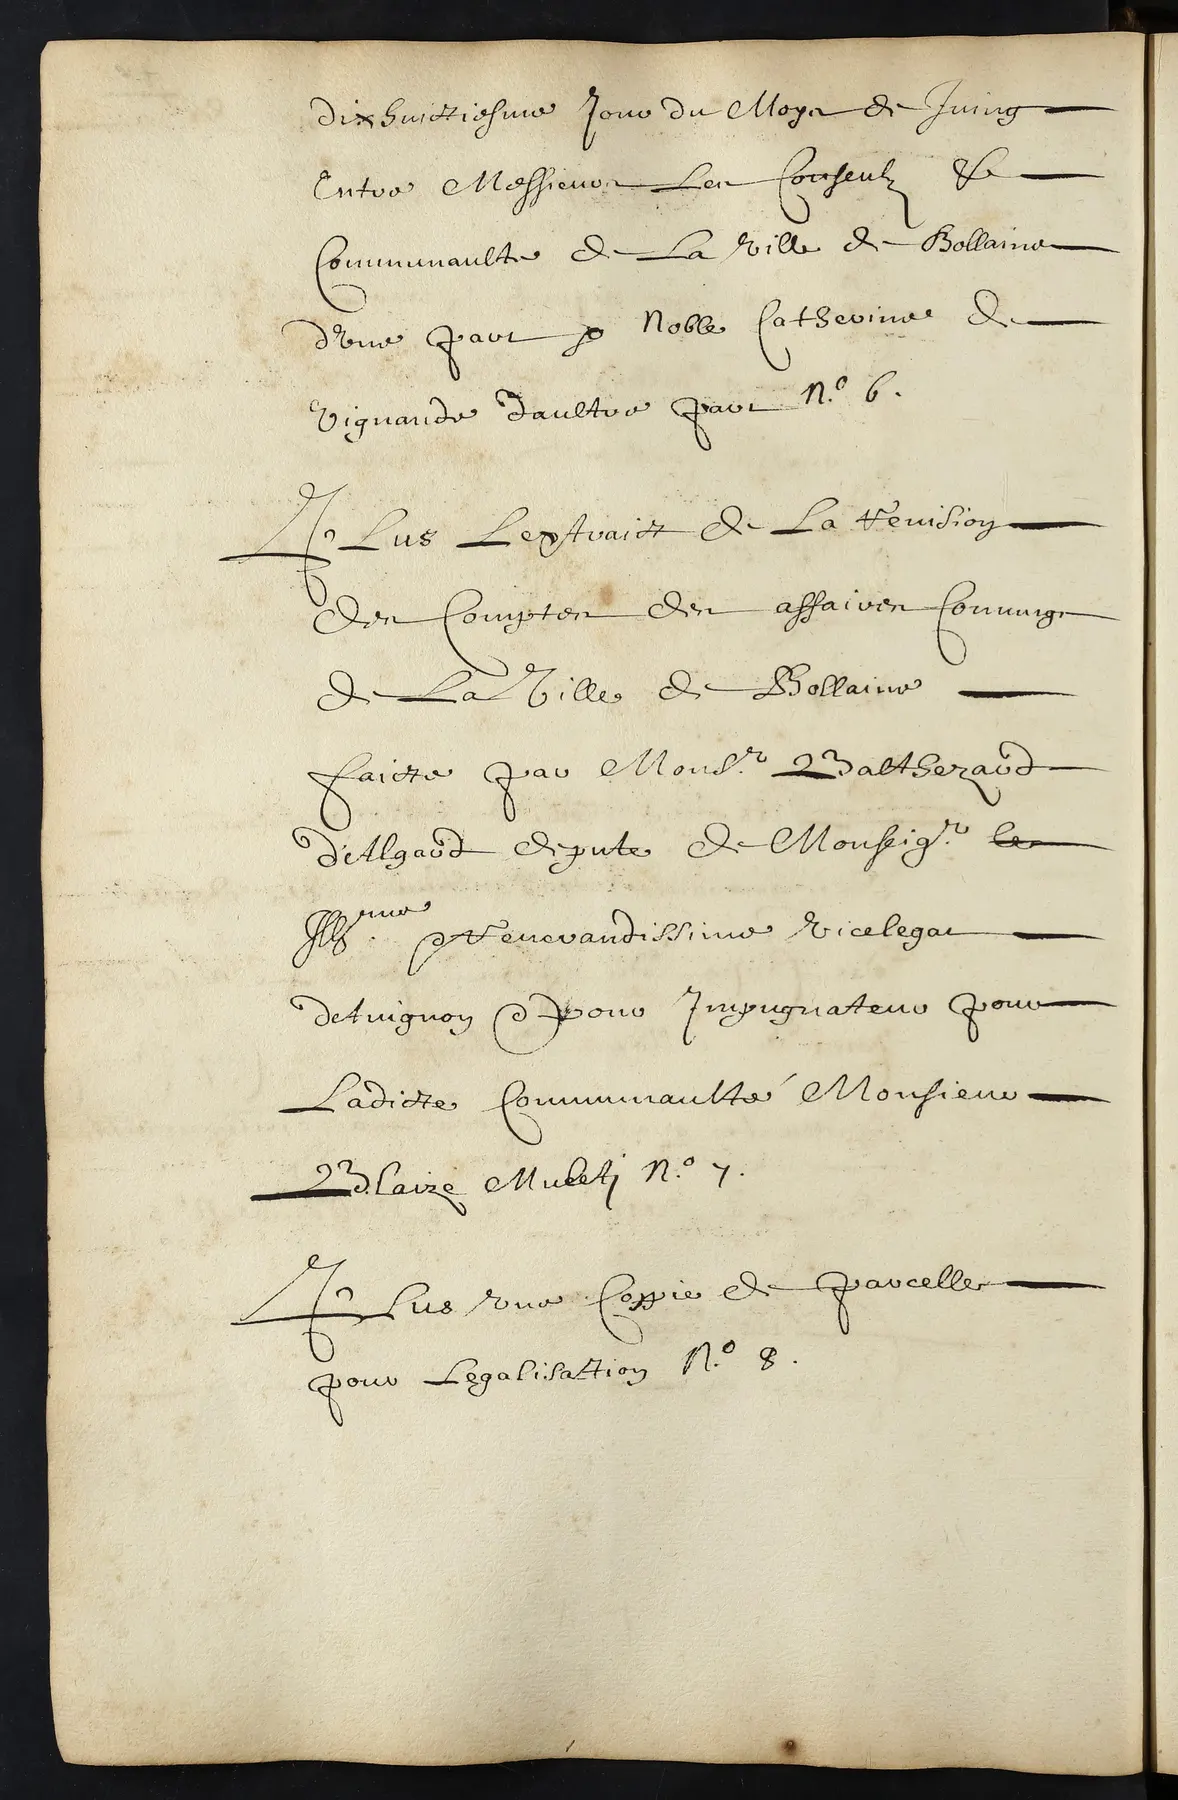 dixhuictiesme Jour du Moys de Juing
Entre Messieurs Les Conseulz &
Communaulte de La Ville de Bollaine
d'Vne part & Noble Catherine de
Vignande Daultre part N.o 6.
Plus Lextraict de La revision
des Comptes des affaires Commungs
de La Ville de Bollaine
faicte par Mons.r Balthezard
D'Algard depute de Monseig.r le
Ill.me et reverandissime Vicelegat
D'Avignon et pour Impugnateur pour
Ladicte Communaulté Monsieur
Blaize Muletj N.o 7.
Plus vne Coppie de parcelles
pour Legalisattion N.o 8.